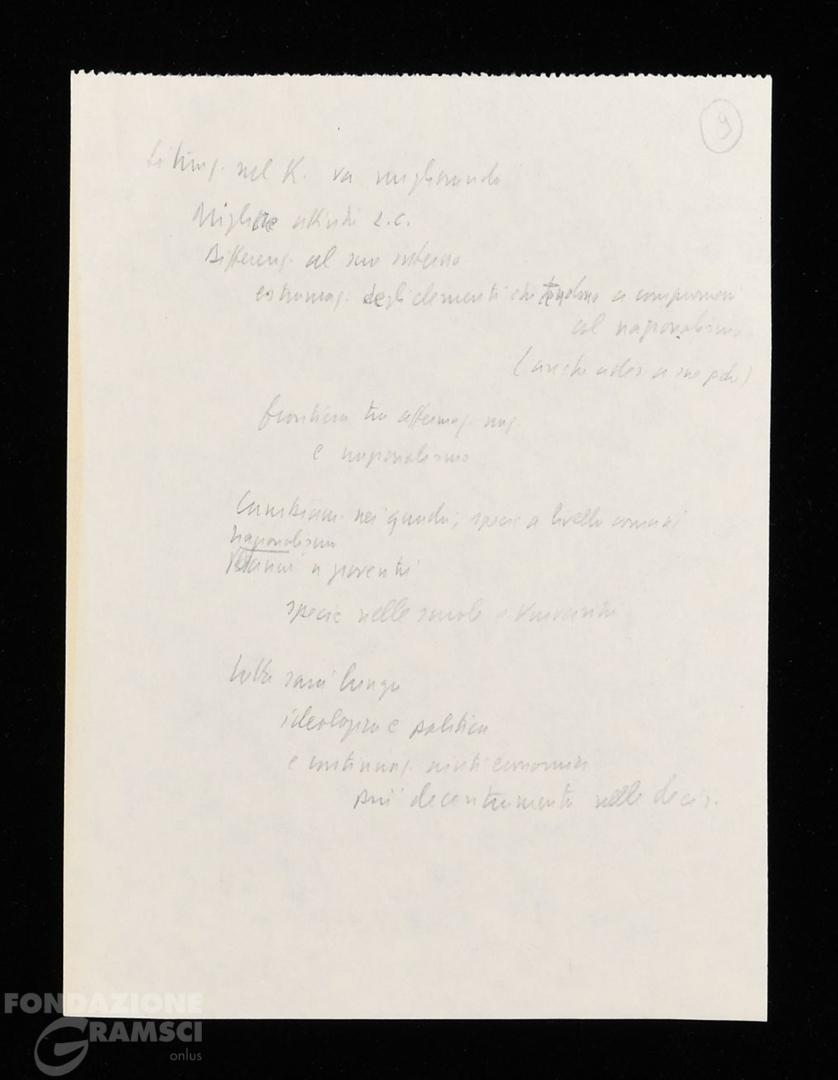 9
Situaz. nel K. va migliorando
Migliore attività L.C.
Differenz. al suo interno
estromaz. degli elementi che tendono a compromessi
col nazionalismo
(anche
frontiera tra affermaz. naz.
e nazionalismo
Cambiam. nei quadri, specie a livello
nazionalismo
specie nelle scuole e Università
lotta sarà lunga
ideologica e politica
e continuaz. aiuti economici
più decentramento nelle decis.
FONDAZIONE
GRAMSCI
onlus